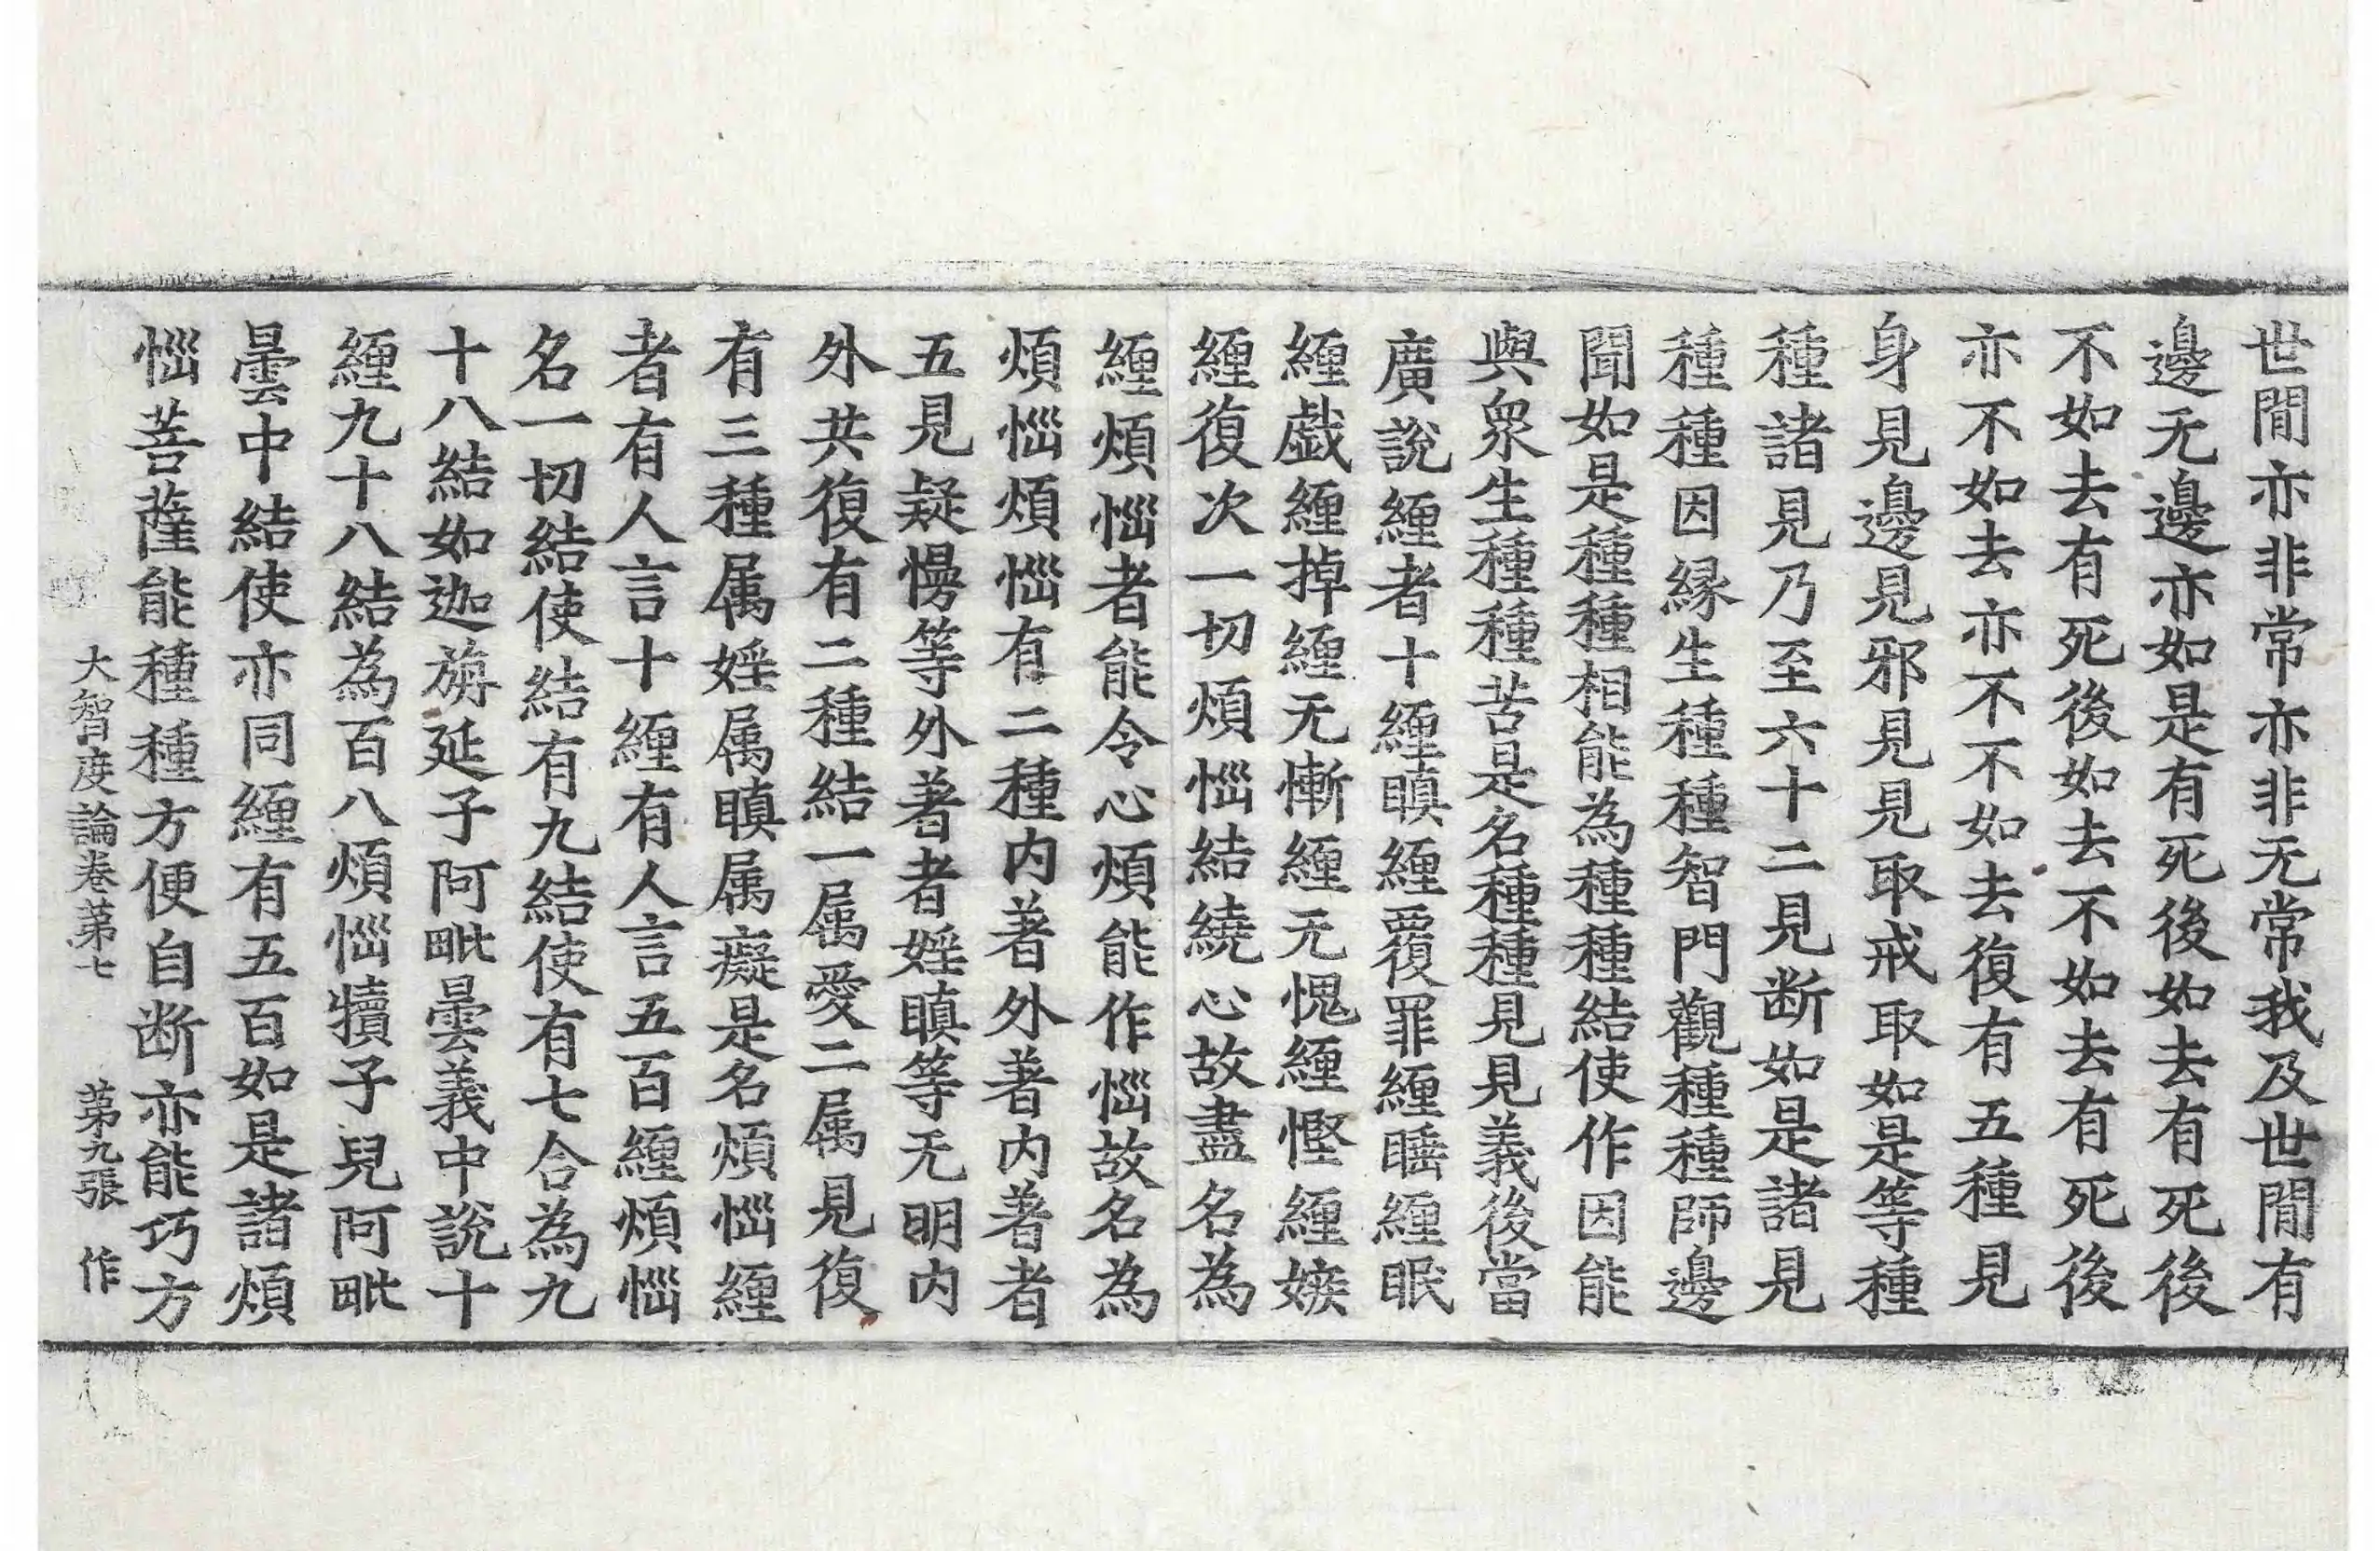 世閒亦非常亦非无常我及世閒有
邊无邊亦如是有死後如去有死後
不如去有死後如去不如去有死後
亦不如去亦不不如去復有五種見
身見邊見邪見見取戒取如是等種
種諸見乃至六十二見断如是諸見
種種因縁生種種智門觀種種師邊
聞如是種種相能為種種結使作因能
與衆生種種苦是名種種見見義後當
廣說纏者十纏瞋纏覆罪纏睡纏眠
纏戯纏掉纏无慚纏无愧纏慳纏嫉
纏復次一切煩惱結繞心故盡名為
纏煩惱者能令心煩能作惱故名為
煩惱煩惱有二種内著外著内著者
五見疑慢等外著者婬瞋等无明内
外共復有二種結一属愛二属見復
有三種属婬属瞋属癡是名煩惱纏
者有人言十纏有人言五百纏煩惱
名一切結使結有九結使有七合為九
十八結如迦旃延子阿毗曇義中說十
纏九十八結為百八煩惱犢子兒阿毗
曇中結使亦同纏有五百如是諸煩
惱菩薩能種種方便自断亦能巧方
大智度論卷第七 第九張 作